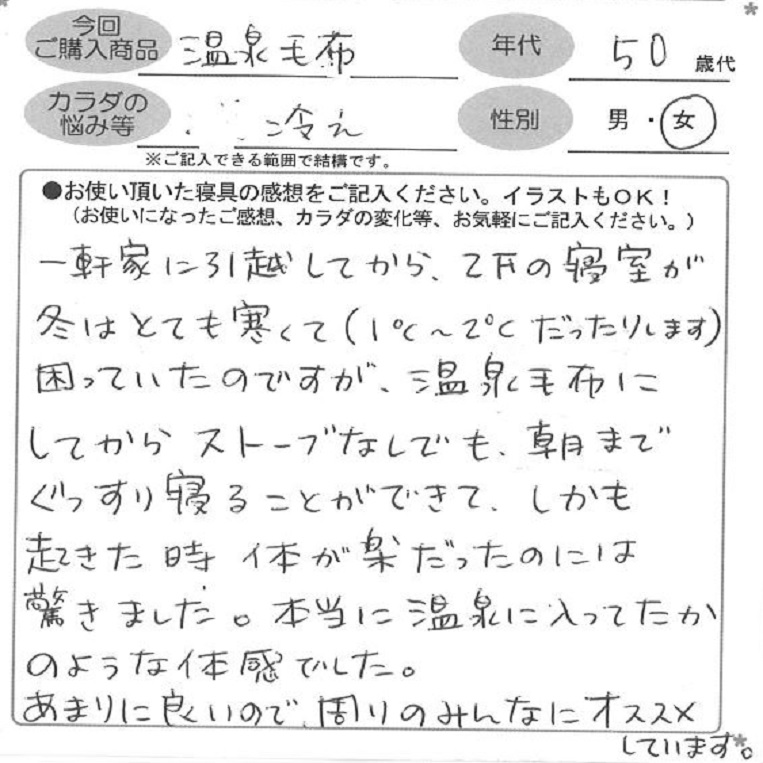 今回
ご購入商品 温泉毛布 年代 50 歳代
カラダの
悩み等 冷え 性別 男・女
※ご記入できる範囲で結構です。
●お使い頂いた寝具の感想をご記入ください。イラストもOK!
(お使いになったご感想、カラダの変化等、お気軽にご記入ください。)
一軒家に引越してから、2Fの寝室が
冬はとても寒くて(1℃~2℃だったりします)
困っていたのですが、温泉毛布に
してから ストーブなしでも、朝まで
ぐっすり寝ることができて、しかも
起きた時 体が楽だったのには
驚きました。本当に温泉に入ってたか
のような体感でした。
あまりに良いので、周りのみんなにオススメ
しています。